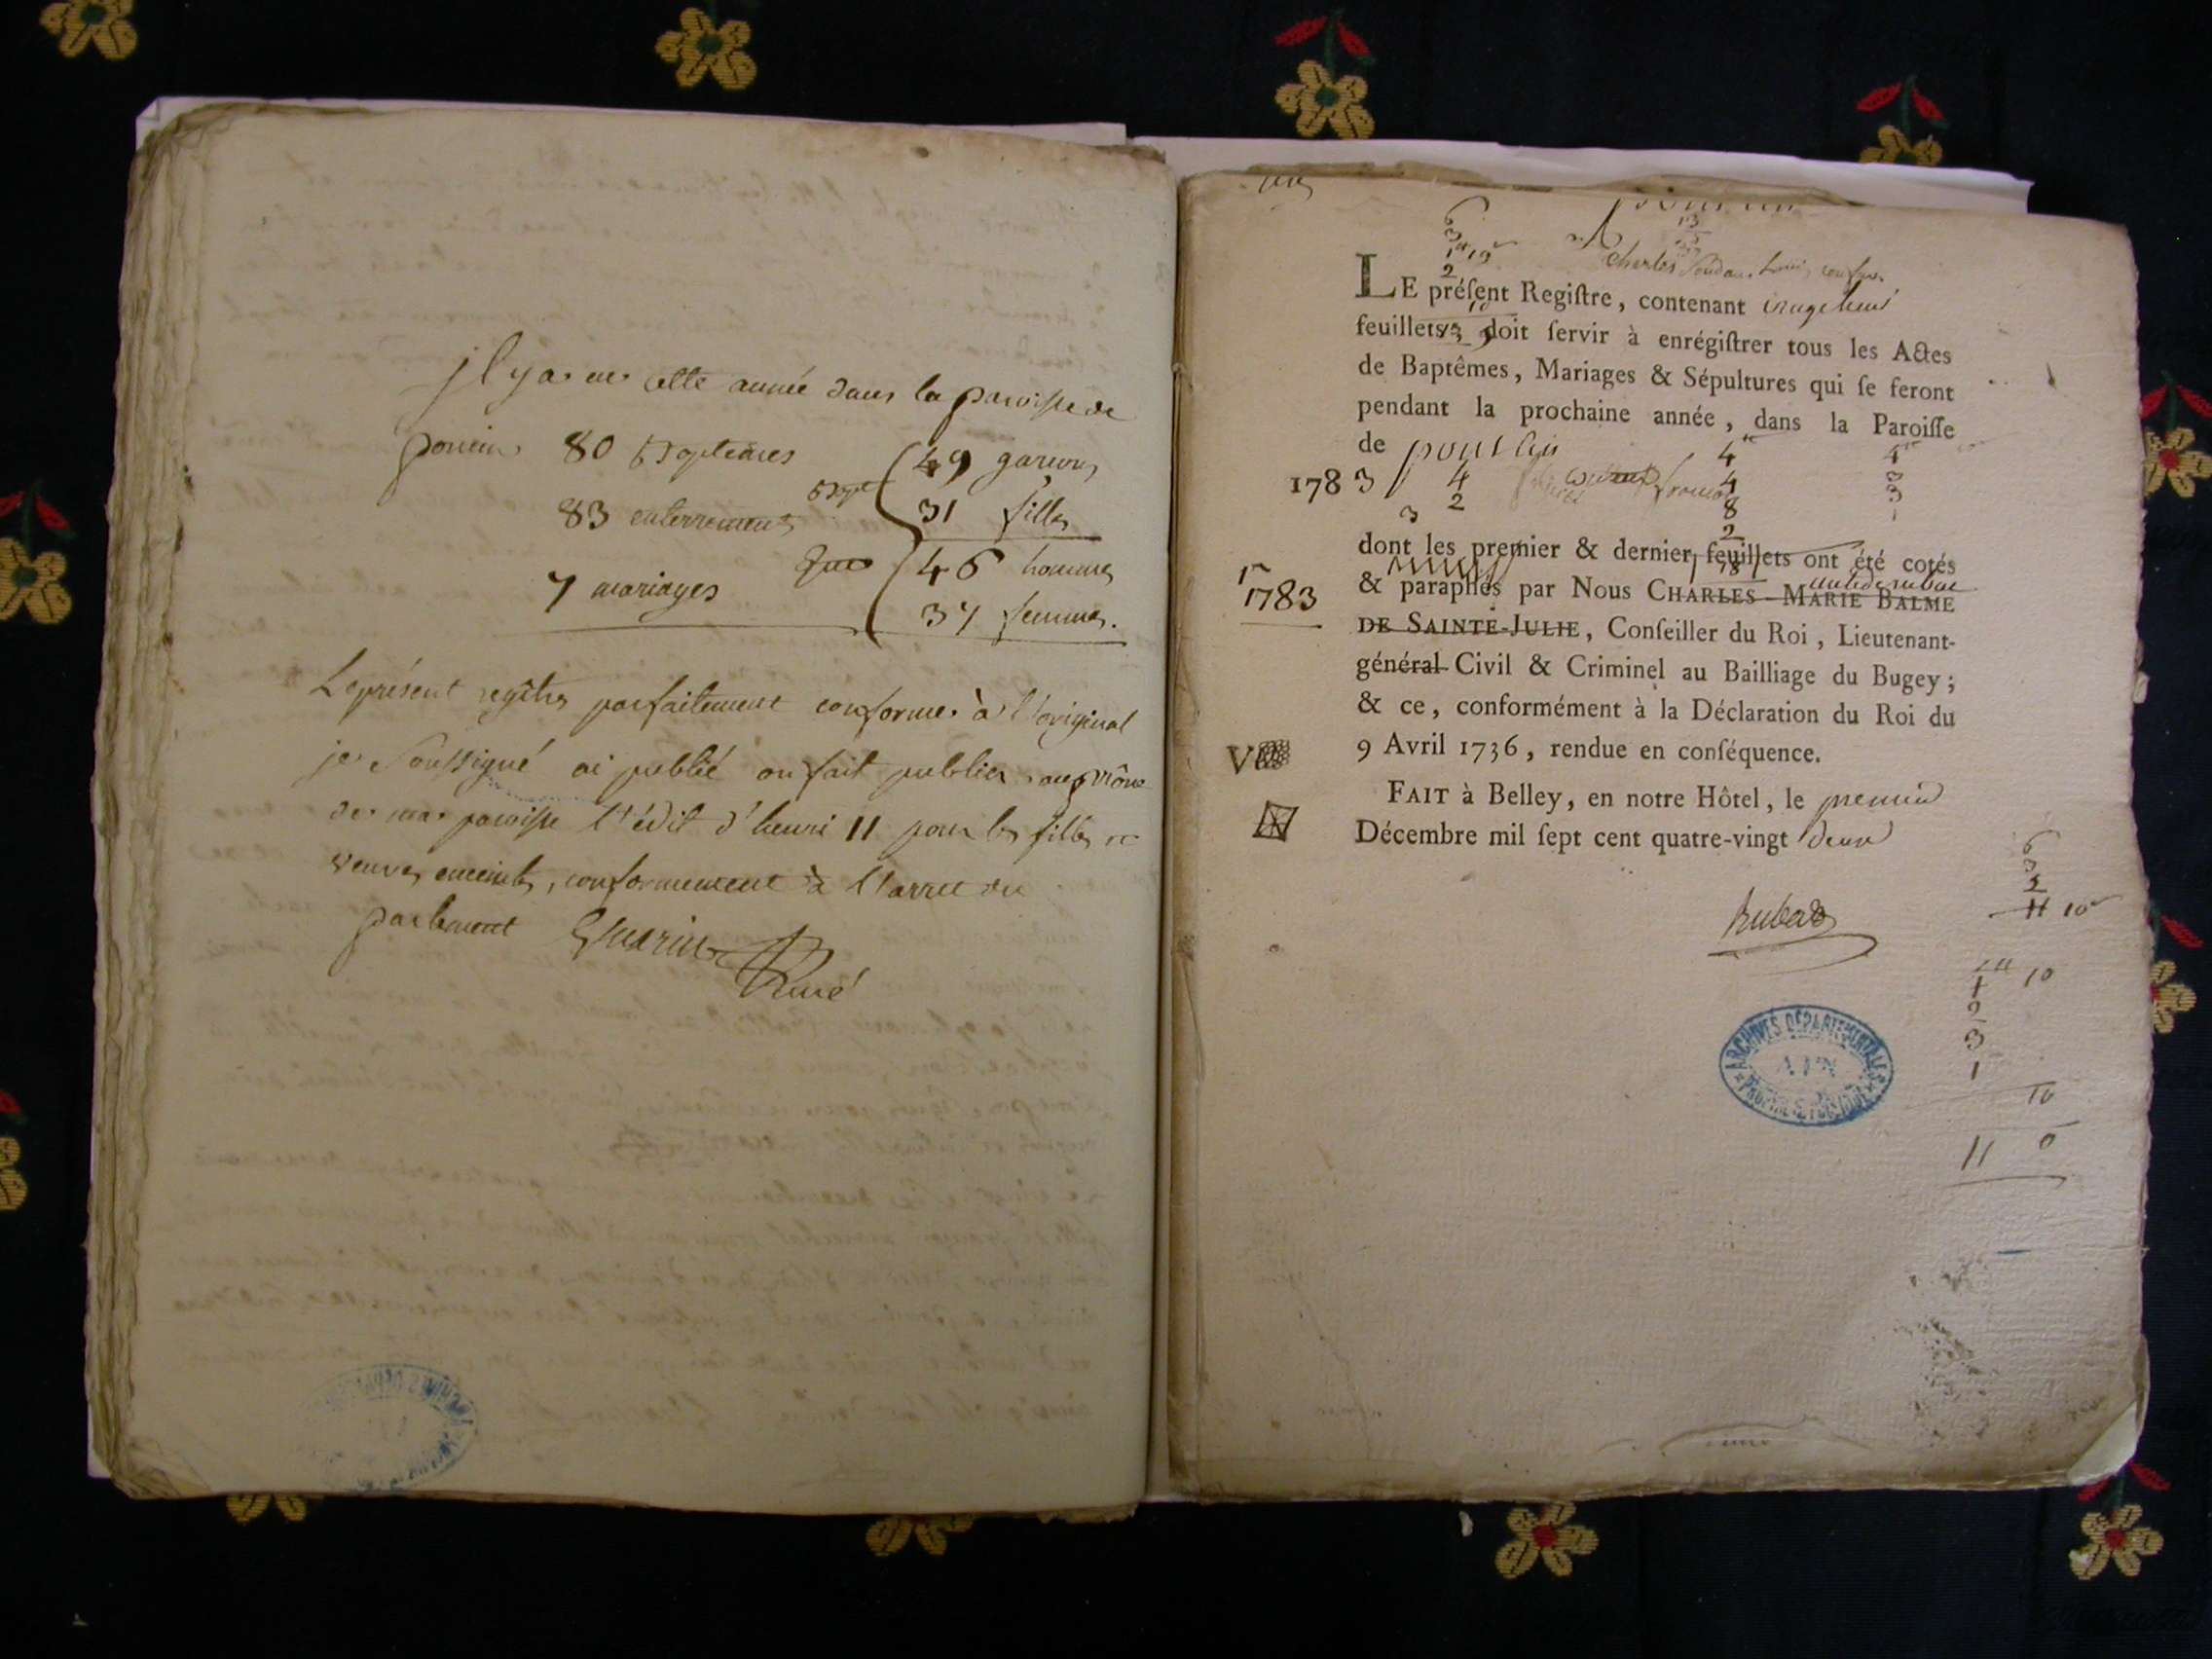 jl y a eu cette année dans la paroisse de
poncin 80 Baptêmes
49 garcons
Bapt
31 filles
83 enterrements
46 hommes
37 femmes.
7 mariages
Le présent regître parfaitement conforme à l'original
je Soussigné ai publié ou fait publier au prône
de ma paroisse l'édit d'henri II pour les filles et
veuves enceintes, conformement à l'arret du
parlement Guérin
Curé
6
3
1 10
2
13
Charles
LE préſent Regiſtre, contenant
feuillets, doit ſervir à enrégiſtrer tous les Actes
de Baptêmes, Mariages & Sépultures qui ſe feront
pendant la prochaine année, dans la Paroiſſe
de poncin
1783
4
2
3
4
4
8
2
18
4
3
3
dont les premier & dernier feuillets ont été cotés
& paraphés par Nous CHARLES-MARIE BALME
DE SAINTE-JULIE, Conſeiller du Roi, Lieutenant-
général Civil & Criminel au Bailliage du Bugey;
& ce, conformément à la Déclaration du Roi du
9 Avril 1736, rendue en conſéquence.
1783
FAIT à Belley, en notre Hôtel, le premier
Décembre mil ſept cent quatre-vingt deux
Rubat
6
3
2
11 10
10
1
2
3
1
10
11 0
ARCHIVES DÉPARTEMENTALES
AIN
PROPRIÉTÉ PUBLIQUE